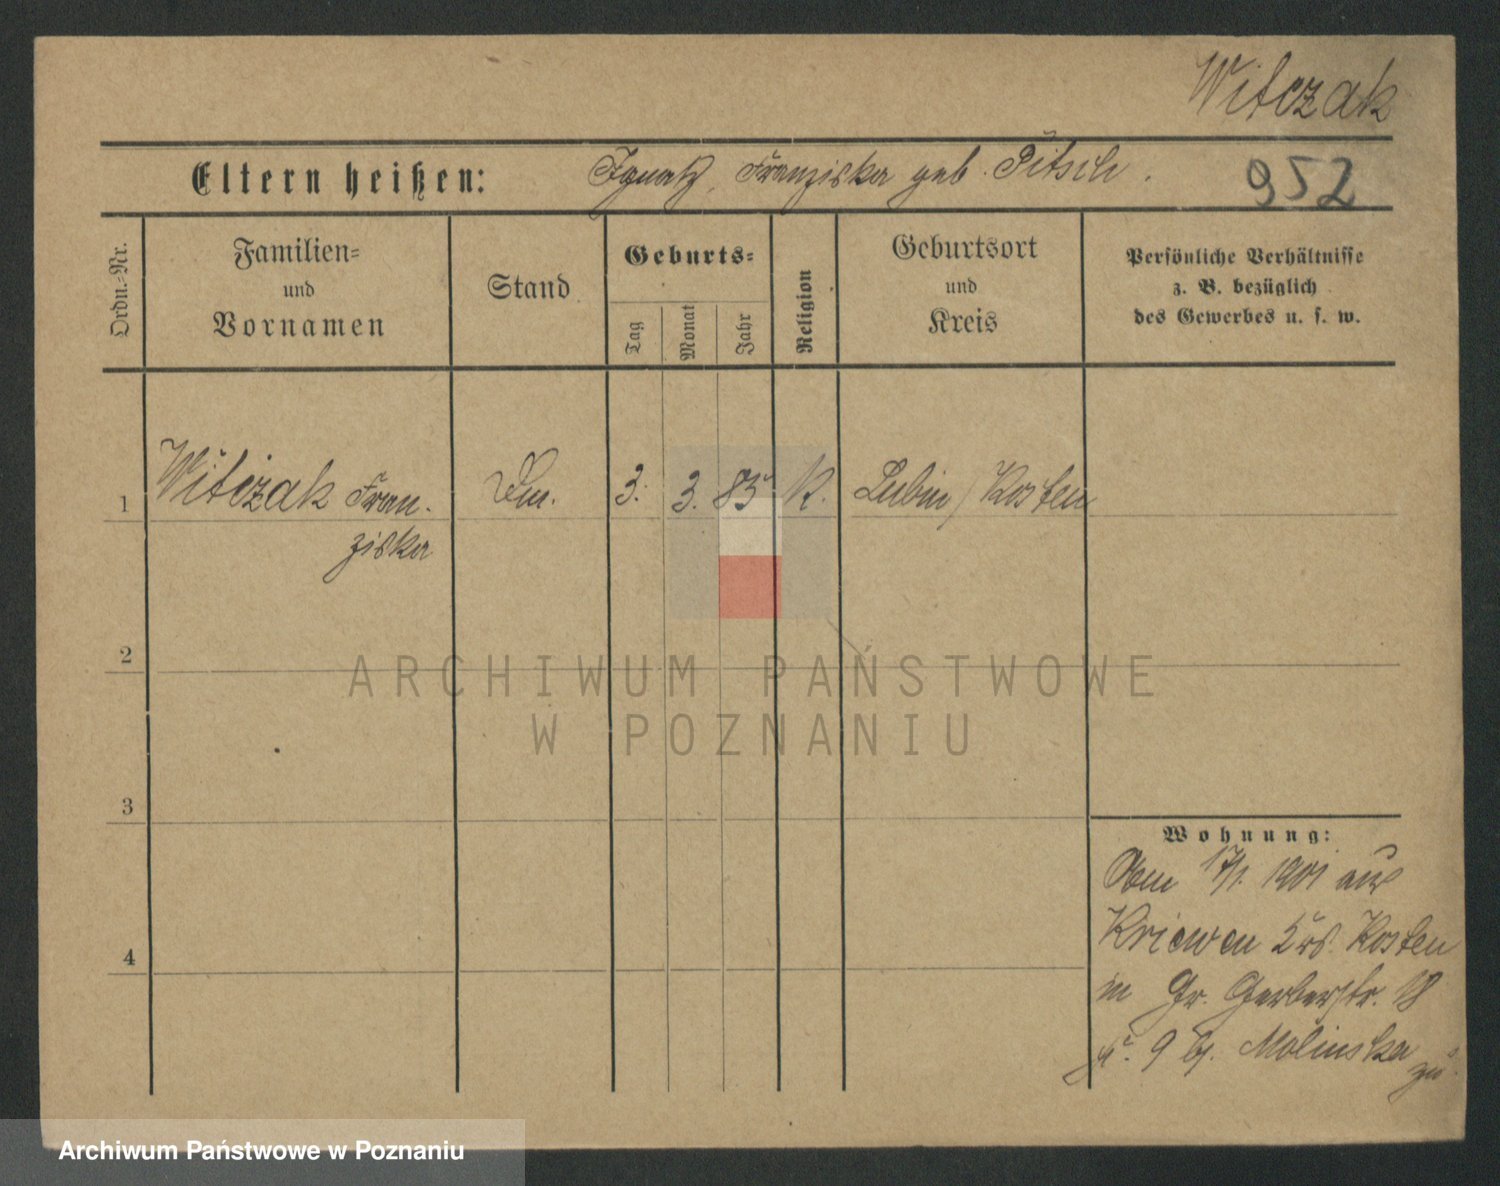 Witczak
Eltern heißen: Ignatz, Franziska geb. Pitsch.
952
Ordn.-Nr.
Familien-
und
Vornamen
Stand
Geburts-
Tag
Monat
Jahr
Religion
Geburtsort
und
Kreis
Persönliche Verhältnisse
z. B. bezüglich
des Gewerbes u. s. w.
1 Witczak Fran- 3. 3. 85 K. Lubin / Kosten
ziska
2
ARCHIWUM PAŃSTWOWE
W POZNANIU
3
4
Wohnung:
17/1. 1901 aus
Kriewen Krs. Kosten
in Gr. Gerberstr. 18
9 bj. Molinska
zu.
Archiwum Państwowe w Poznaniu